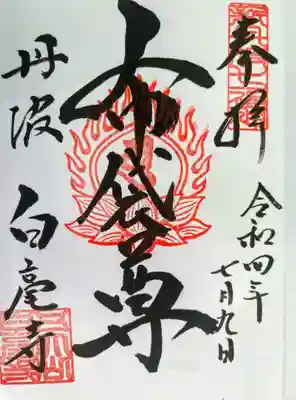 奉拝
令和四年
七月九日
布袋尊
丹波
白毫寺